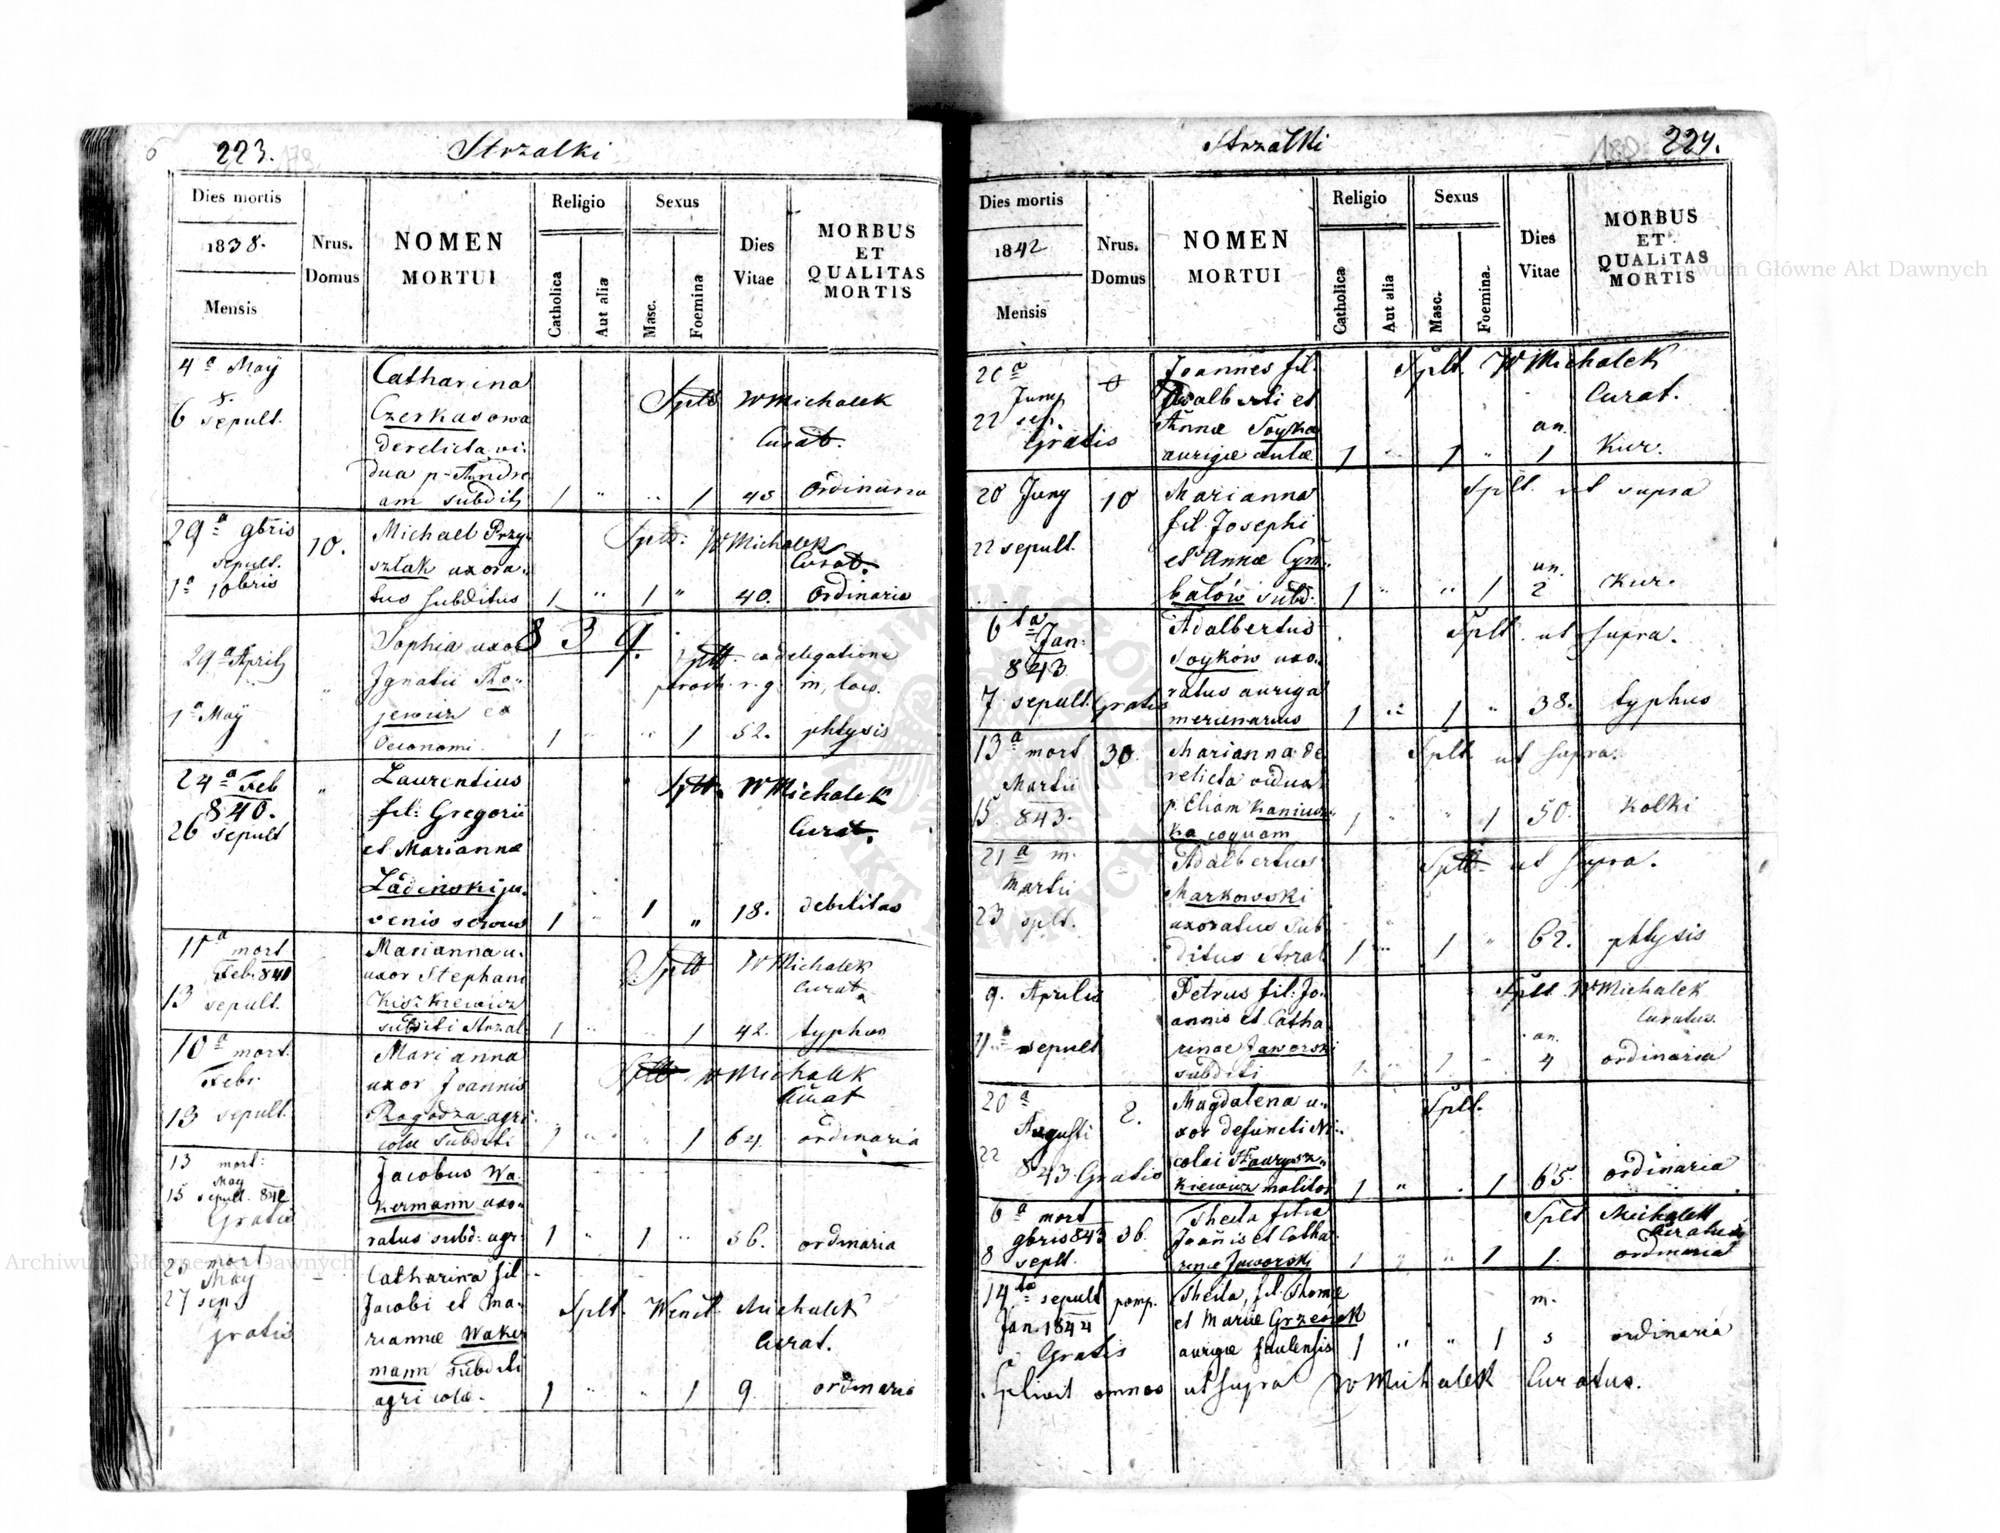 223.
Strzalki
Dies mortis
1838.
Mensis
Nrus.
Domus
NOMEN
MORTUI
Religio
Catholica
Aut alia
Sexus
Masc.
Foemina
Dies
Vitae
MORBUS
ET
QUALITAS
MORTIS
4 a May
6 sepult.
Catharina
Czerkasowa
derelicta vi-
dua p. Andre
am subditi
Splt W Michalek
Curat.
1 " " 1 45 Ordinaria
29 a 9bris
sepult.
1 a 10bris
10.
Michael Przy-
szlak uxora-
tus subditus
Splt: W Michalek
Curat.
1 " 1 " 40. Ordinaria
839.
29 a Aprilj
1 a May
Sophia uxor
Ignatii
jewicz ex
Oeconomi.
Splt. ex delegatione
paroch. r. g. m. loci.
1 " " 1 52. phtysis
24 a Feb
840.
26 sepult
"
Laurentius
fil: Gregorii
et Mariannæ
Ladinski ju-
venis servus
Splt. W Michalek
Curat.
1 " 1 " 18. debilitas
11 a mort
Feb. 841
13 sepult.
Marianna u-
uxor Stephani
Kiszkiewicz
subditi Strzal
Splt W Michalek
Curat.
1 " " 1 42. typhus
10 a mort.
Febr.
13 sepult.
Marianna
uxor Joannis
Rogodza agri-
colæ subditi
Splt W Michalek
Curat
1 " " 1 64. ordinaria
13 mort:
May
15 sepult. 842
Gratis
Jacobus Wa-
kermann uxo-
ratus subd: agr:
1 " 1 " 56. ordinaria
25 mort
May
27 sep.
Gratis
Catharina fil
Jacobi et Ma-
riannæ Waker
mann subditi
agricolæ.
Splt. Wenit. Michalek
Curat.
1 " " 1 9. ordinaria
224.
Strzalki
Dies mortis
1842
Mensis
Nrus.
Domus
NOMEN
MORTUI
Religio
Catholica
Aut alia
Sexus
Masc.
Foemina.
Dies
Vitae
MORBUS
ET
QUALITAS
MORTIS
20 a
Junij
22 sep.
Gratis
Joannes fil.
Adalberti et
Annæ Soyka
aurigæ aulæ
Splt W Michalek
Curat.
an.
1 " 1 " 1 Kur.
20 Junij
22 sepult.
10
Marianna
fil. Josephi
et Annæ Cym-
balów subd.
Splt. ut supra
an.
1 " " 1 2 Kur.
6 ta
Jan:
843
7 sepult. Gratis
Adalbertus
Soyków uxo-
ratus auriga
mercenarius
Splt. ut supra.
1 " 1 " 38. typhus
13 a mort
Martii
15 843.
30.
Marianna de
relicta vidua
p. Eliam Kaniuw-
ka coquam
Splt. ut supra.
1 " " 1 50. Kolki
21 a m.
Martii
23 splt.
Adalbertus
Markowski
uxoratus sub
ditus Strzal
Splt ut supra.
1 " 1 " 62. phtysis
9. Aprilis
11 a sepult
Petrus fil: Jo-
annis et Catha
rinae Jaworski
subditi
Splt. W Michalek
Curatus.
an.
1 " 1 " 4 ordinaria
20 a
Augusti
22
843 Gratis
2.
Magdalena u-
xor defuncti Ni-
colai
kiewicz molitor
Splt.
1 " . 1 65. ordinaria
6 a mort
9bris 843
8 sepult.
36.
Thecla filia
Joañis et Catha
rinæ Jaworski
Splt Michalek
Curatus
1 " " 1 1. ordinaria
14 ta sepult
Jan. 1844
a Gratis
pomp.
Thecla, fil. Thomæ
et Mariæ Grzesiek
aurigæ
m.
1 " " 1 3 ordinaria
Splivit omnes ut supra W Michalek Curatus.
Archiwum Główne Akt Dawnych
Archiwum Główne Akt Dawnych